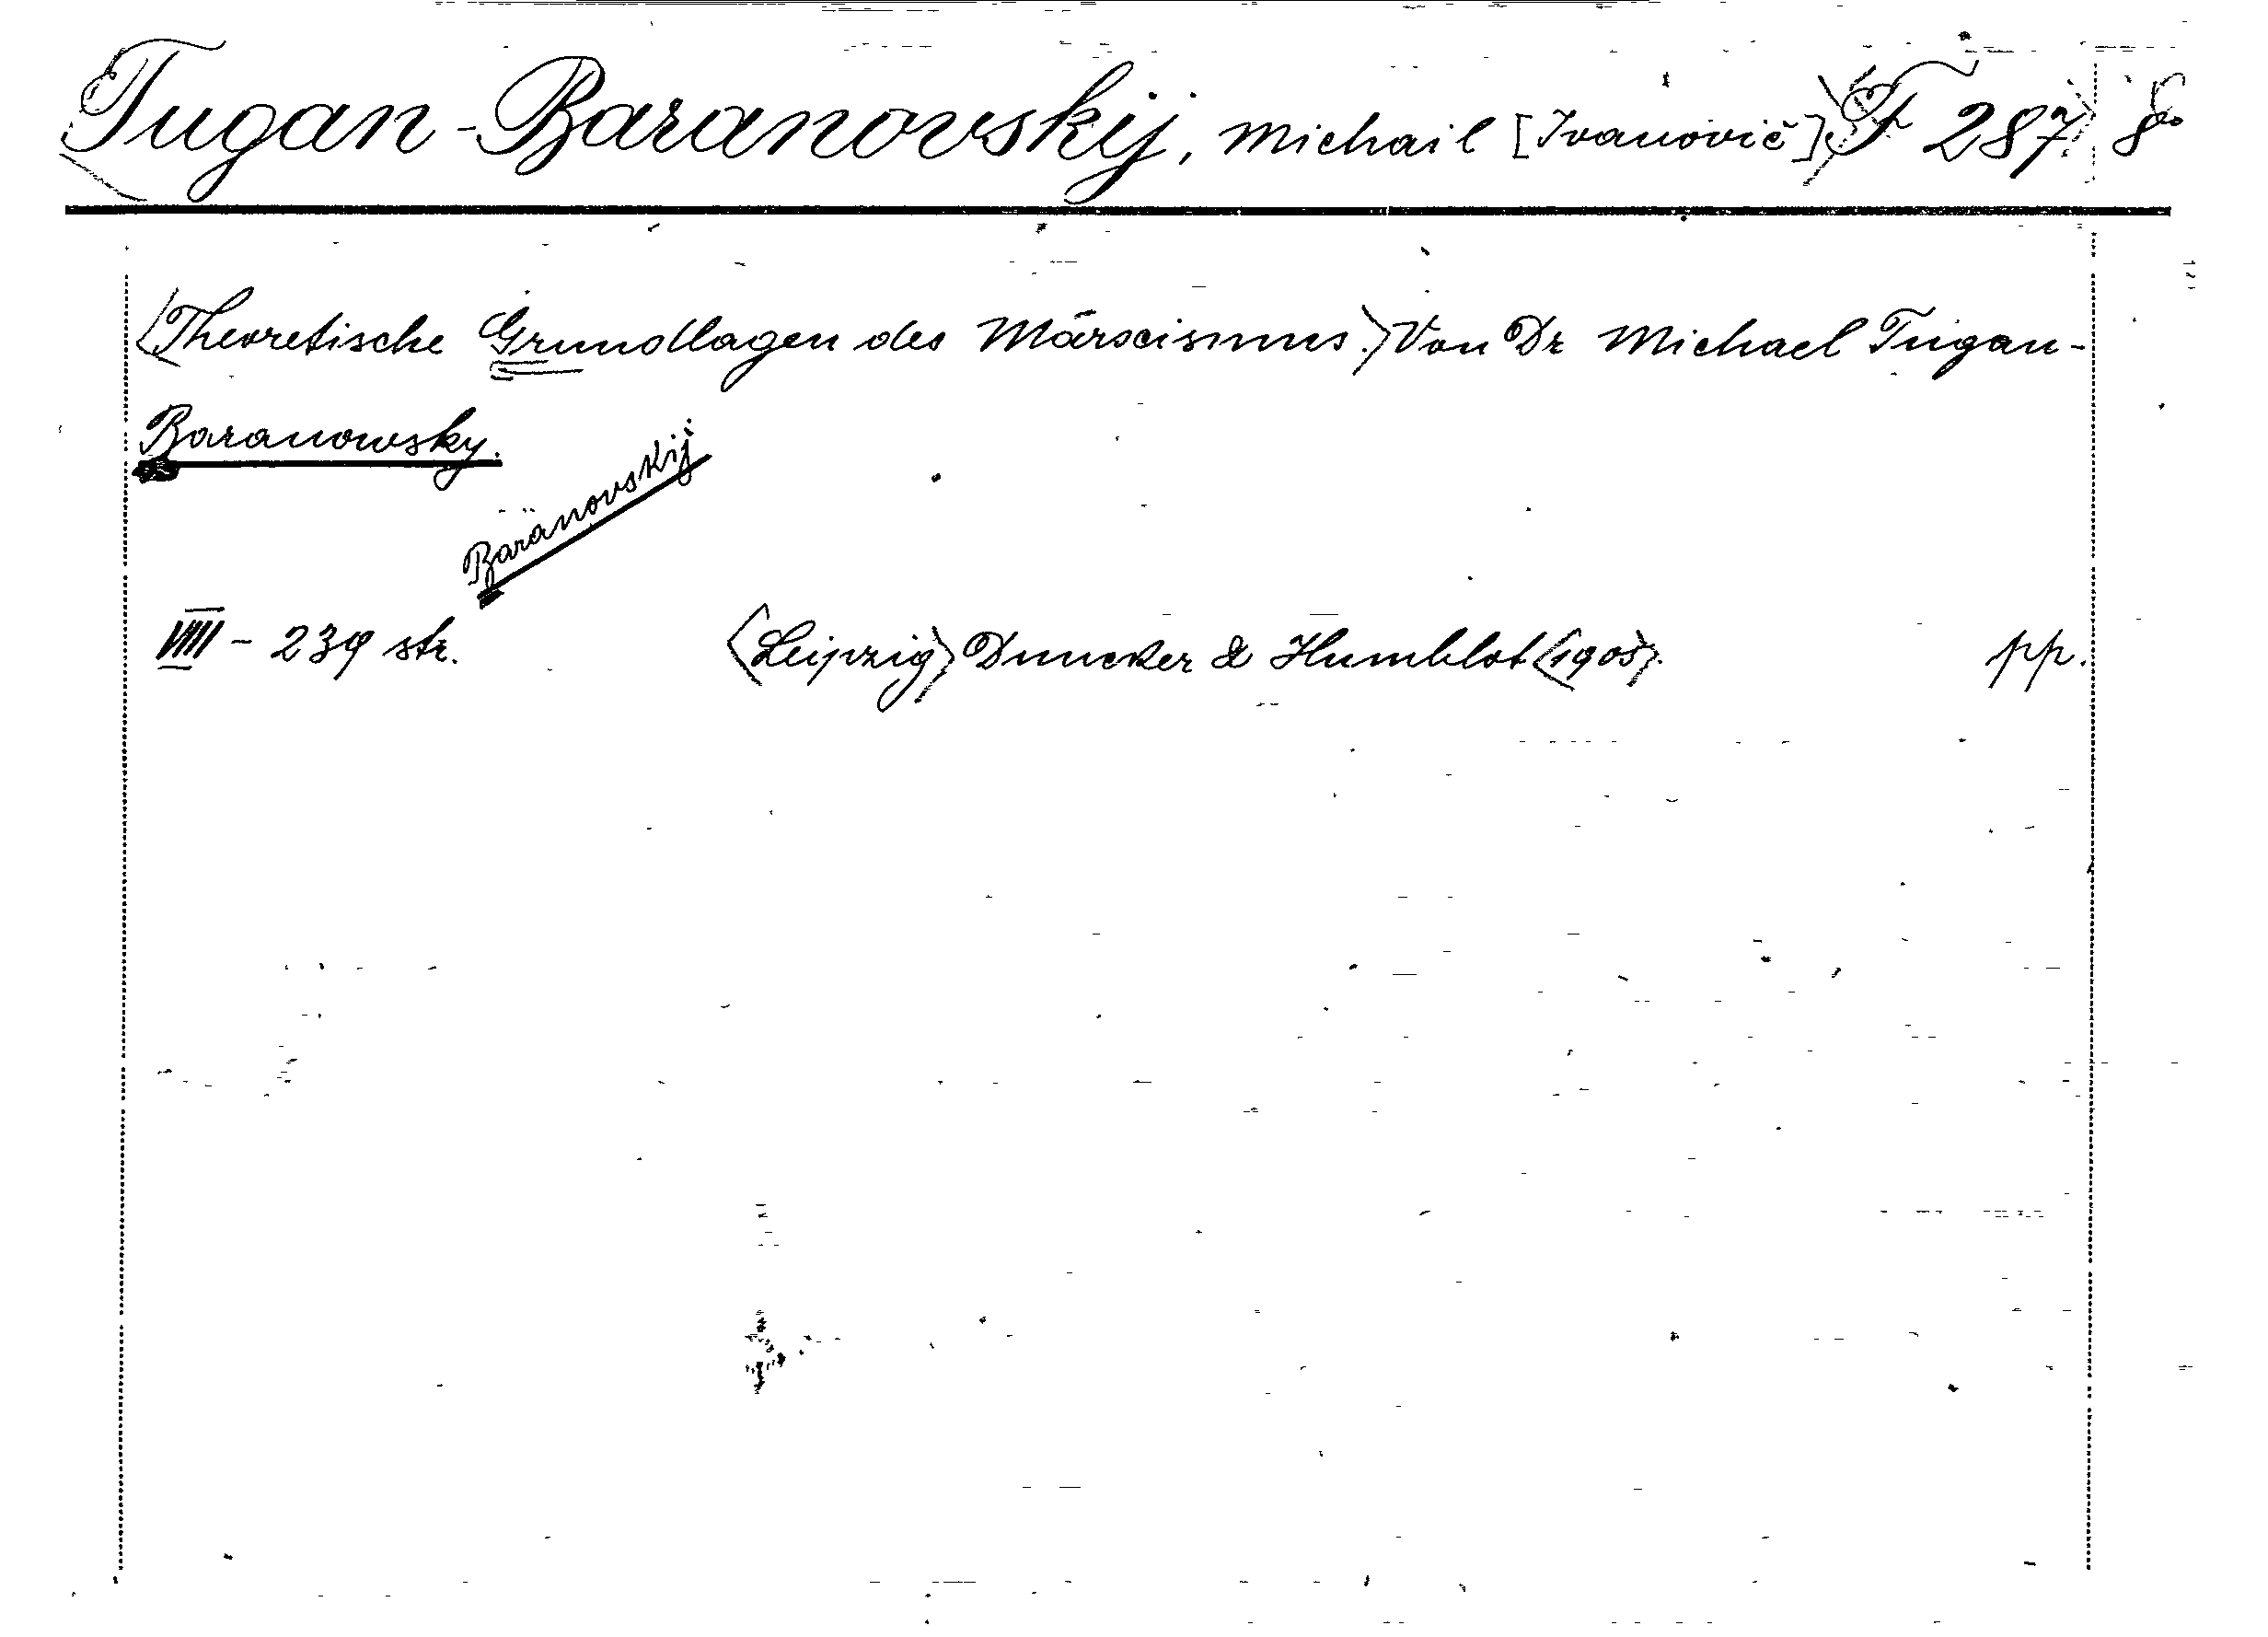 Tugan-Baranovskij, Michail [Ivanovič] F 287. 8°
Theoretische Grundlagen des Marxismus. Von Dr Michael Tugan-
Baranowsky.
Baranovskij
VIII - 239 str. Leipzig Duncker & Humblot 1905. pp.